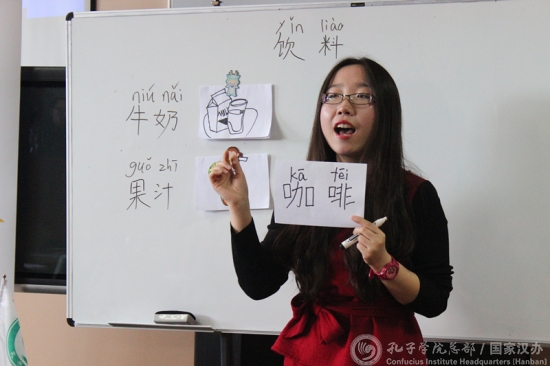 yǐn liào
饮 料
niú nǎi
牛奶
guǒ zhī
果汁
kā fēi
咖啡
孔子学院总部 / 国家汉办
Confucius Institute Headquarters (Hanban)